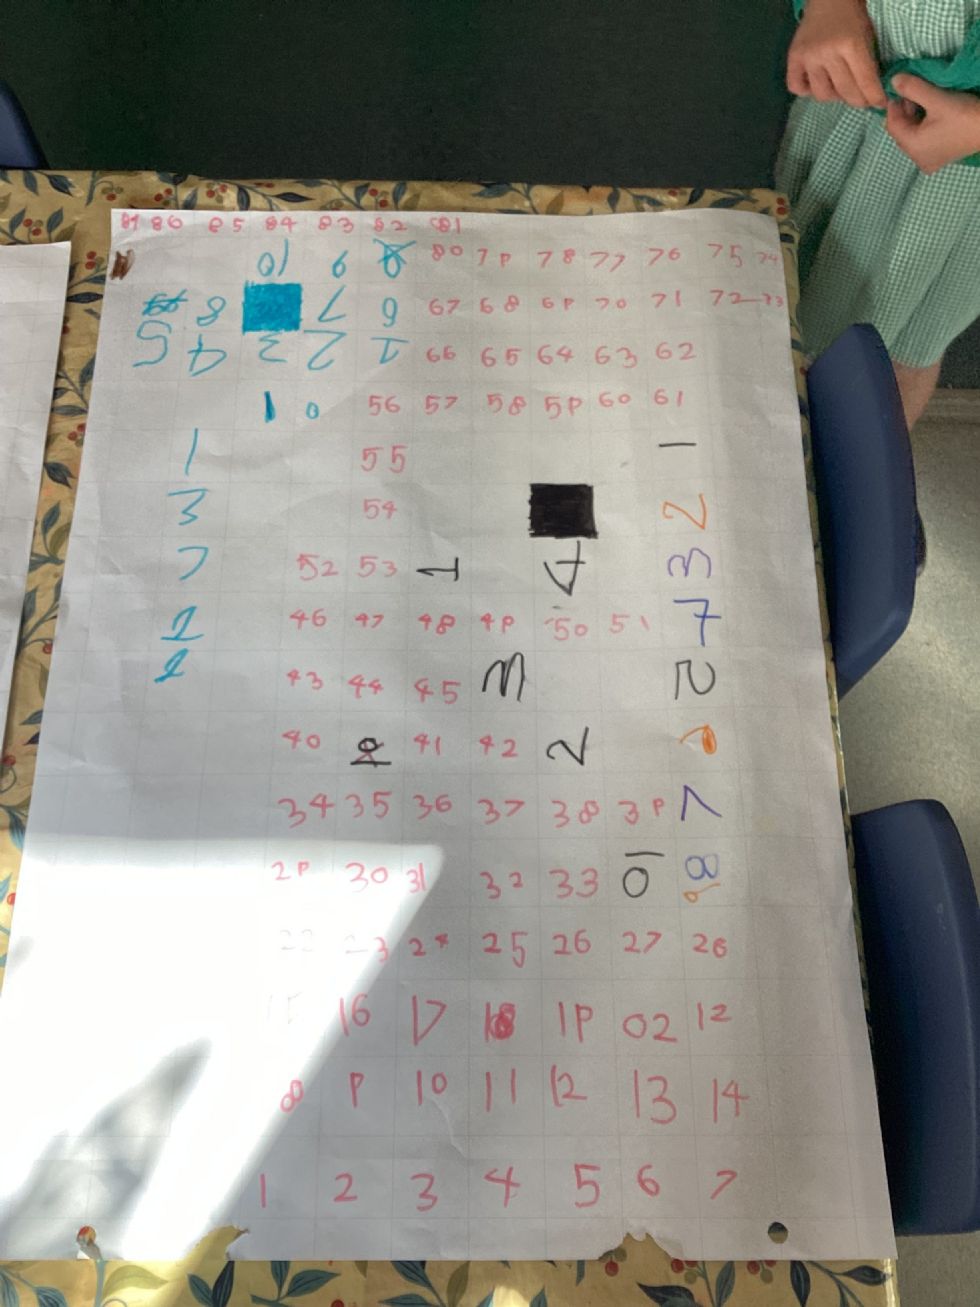 87 86 85 84 83 82 81
10 9 80 7P 78 77 76 75 74
8 7 6 67 68 6P 70 71 72 73
5 4 3 2 1 66 65 64 63 62
1 0 56 57 58 5P 60 61
1 55 1
3 54 2
7 52 53 1 4 3
2 46 47 48 4P 50 51 7
2 43 44 45 3 2
40 41 42 2
34 35 36 37 38 3P 7
2P 30 31 32 33 10 8
22 23 24 25 26 27 28
15 16 17 18 1P 02 12
8 P 10 11 12 13 14
1 2 3 4 5 6 7